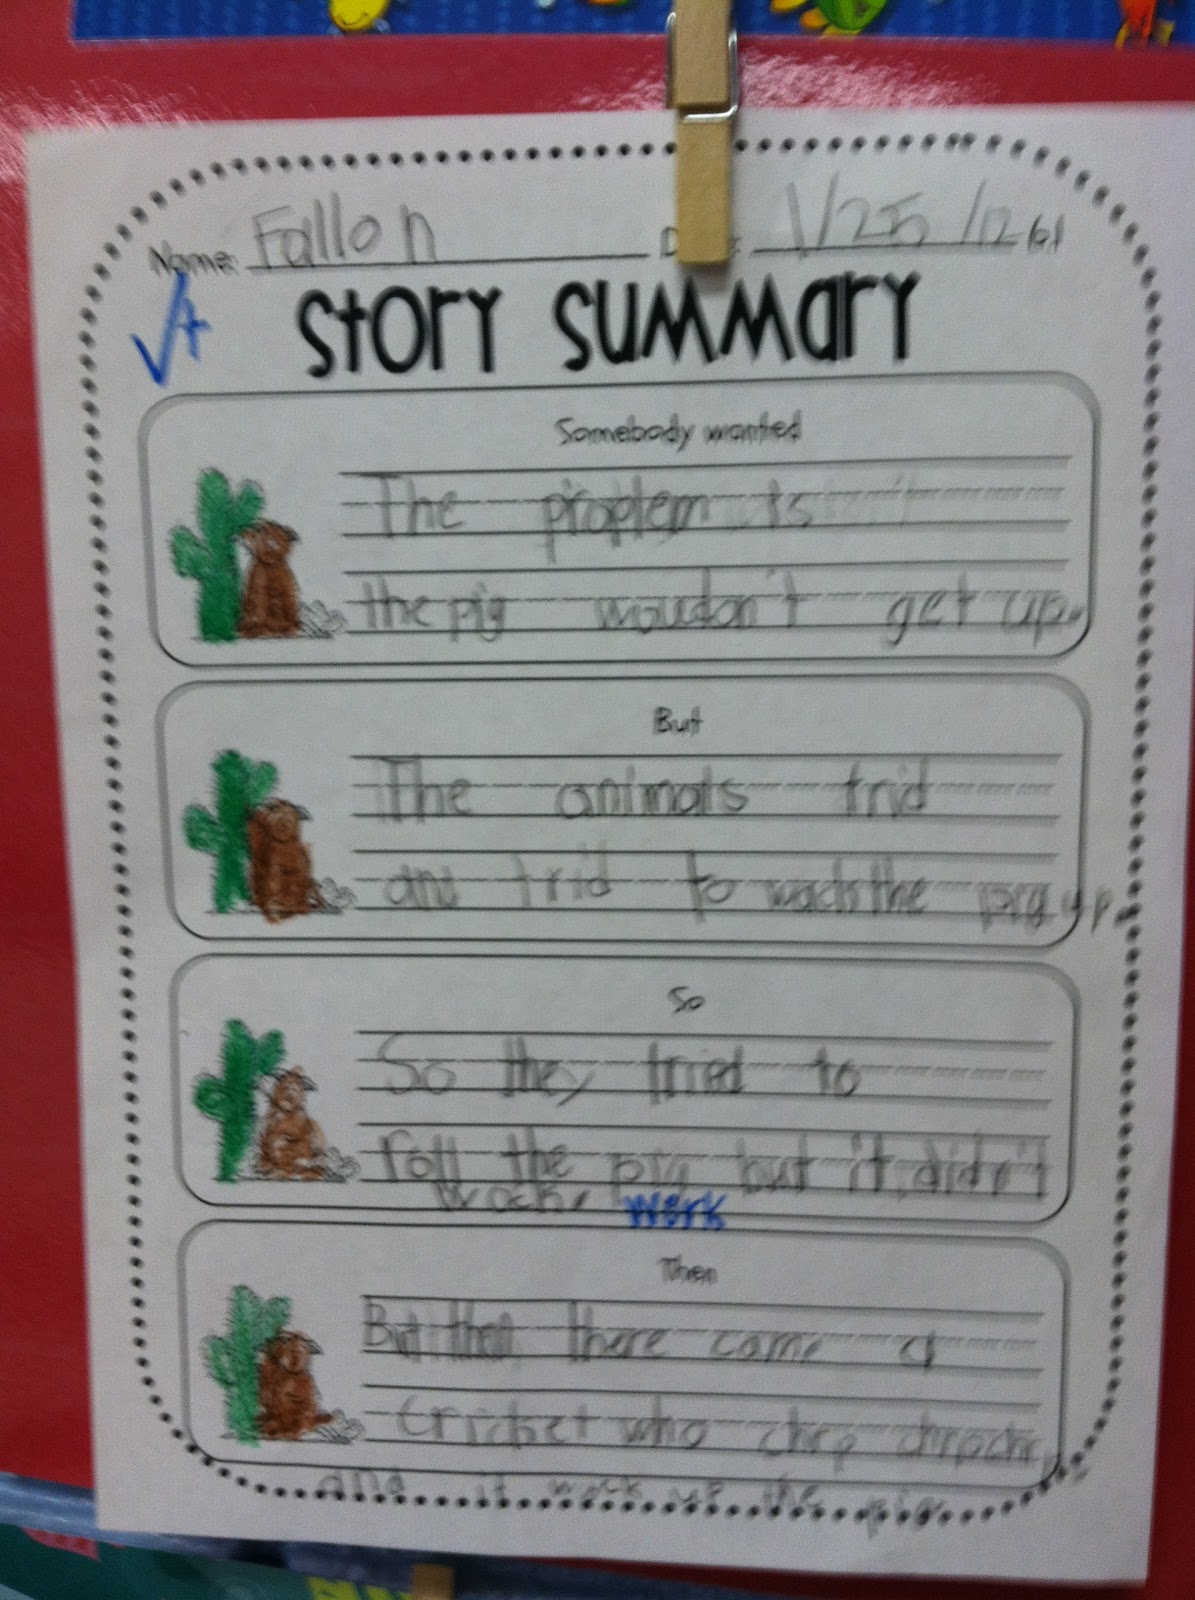 Name: Fallon 1/25/12
√+
Story Summary
Somebody wanted
The problem is
the pig woudon't get up.
But
The animals trid
and trid to wack the pig up.
So
So they tried to
roll the pig but it didn't
wock. work
Then
But then there came a
cricket who chrp chrp chrp
and it wock up the pig.